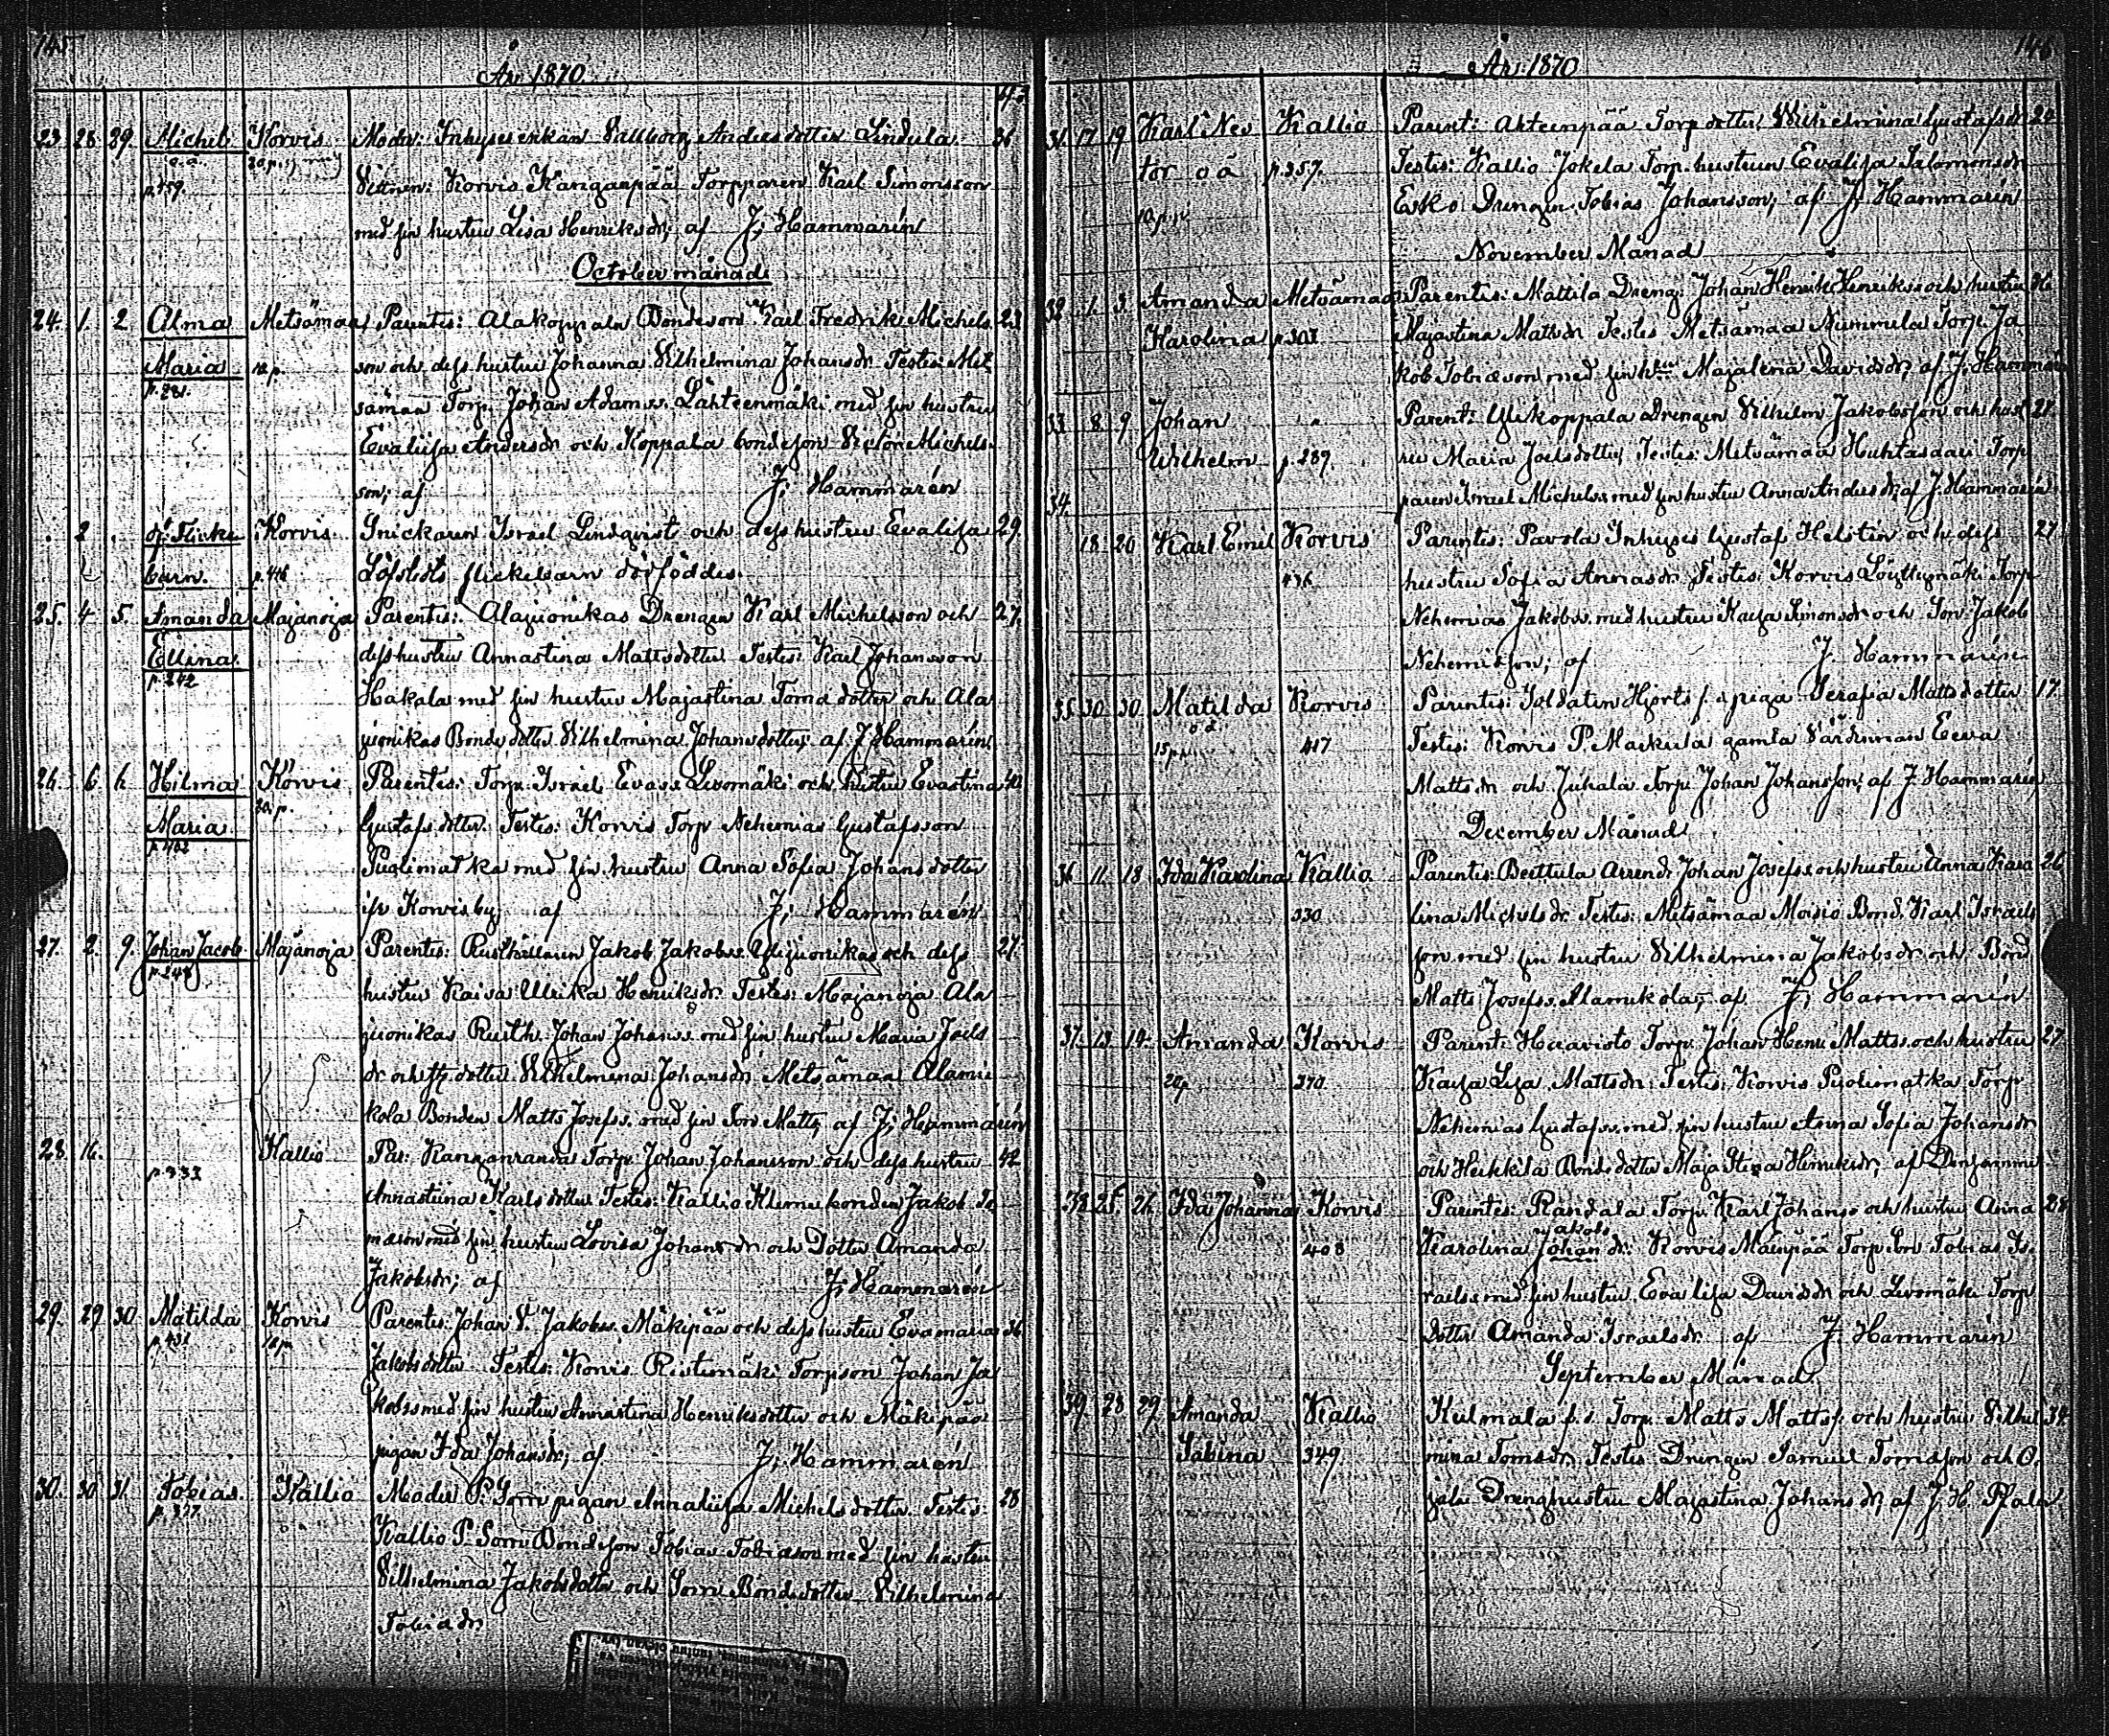 145
År 1870
23. 28 29. Michel Korvis Moder: Inhyses enkan Wallborg Andersdotter Lindula. 36
o.ä. p.459. Vittnen: Korvis Kangaanpää Torpparen Karl Simonsson
med sin hustru Lisa Henriksdr; af J; Hammarén
October månad
24. 1. 2 Alma Metsämaa Parentes: Alakoppala Bondeson Karl Fredrik Michels 23
Maria 10 p. son och dess hustru Johanna Wilhelmina Johansdr Testes: Met
p. 281. sämaa Torp. Johan Adamss. Lähteenmäki med sin hustru
Evaliisa Andersdr och Koppala bondeson Victor Michels
son; af J; Hammarén
2 df. Flicke Korvis Snickaren Israel Lindqvist och dess hustru Evalisa 29.
barn. p.446 Löfstedts flickebarn dödföddes.
25. 4 5. Amanda Majanoja Parentes: Alajuonikas Drengen Karl Michelsson och 27.
Ellina dess hustru Annastina Mattsdotter Testes: Karl Johansson
p. 242 Hakala med sin hustru Majastina Toma dotter och Ala
juonikas Bonde dotter Wilhelmina Johansdotter; af J Hammarén
26. 6 Hilma Korvis Parentes: Torp. Israel Evass. Levomäki och hustru Evastina 40
Maria 20 p. Gustafs dotter. Testes: Korvis Torp Nehemias Gustafsson
p 402 med sin hustru Anna Sofia Johans dotter
ifr Korvis by; af J; Hammarén
27. 2. 9. Johan Jacob Majanoja Parentes: Rusthållaren Jakob Jakobss. Ylijuonikas och dess 27.
p.248 hustru Kaisa Ulrika Henriksdr Testes: Majanoja Ala
juonikas Rusth. Johan Johanss. med sin hustru Maria Joels
dr och dotter Wilhelmina Johansdr Metsämaa Alami
kola Bonden Matts Josefss. med sin Son Matts; af J; Hammarén
28. 16. Kallio Par: Kanganranda Torp Johan Johansson och dess hustru 42
p. 333 Annastiina Karls dotter Testes: Kallio Kleme bonden Jakob To
masson med sin hustru Lovisa Johansdr och Dotter Amanda
Jakobsdr; af J; Hammarén
29. 29 30 Matilda Korvis Parentes: Johan V. Jakobss. Mäkipää och dess hustru Evamaria 36
p. 431 10 p Jakobsdotter Testes: Korvis Ristimäki Torpson Johan Ja
kobss med sin hustru Annastina Henriksdotter och Mäkipää
pigan Ida Johansdr; af J; Hammarén
30. 30 31. Tobias. Kallio Moder P: Somi pigan Annaliisa Michelsdotter Testes: 28
p. 327. Kallio P. Somi Bondeson Tobias Tobiasson med sin hustru
Wilhelmina Jakobsdotter och Somi Bondedotter Wilhelmina
Tobiadr
146
År 1870
31. 17 19 Karl Nes Kallio Parent: Ahteenpää Torp dotter Wilhelmina Gustafsdr 24
tor o ä p.357. Testes: Kallio Jokela Torp. hustrun Evalisa Salomonsdr
10 p. Esko Drengen Tobias Johansson; af J; Hammarén
November Månad
32 1. 3. Amanda Metsämaa Parentes: Mattila Dreng. Johan Henrik Henrikss och hustru 36
Karolina p 303 Majastina Mattsdr Testes Metsämaa Nummela Torp. Ja
kob Tobiasson med sin hru Majalena Davidsdr; af J; Hammarén
33 8 9 Johan " Parent: Ylikoppala Drengen Wilhelm Jakobsson och hust 21.
Wilhelm p.289. ru Maria Joelsdotter; Testes: Metsämaa Huhtasaari Torp
34. paren Israel Michelss med sin hustru Anna Andersdr; af J. Hammarén
18 20 Karl Emil Korvis Parentes: Pavola Inhyses Gustaf Helstén och dess 27
436 hustru Sofia Annasdr Testes: Korvis Löyttymäki Torp
Nehemias Jakobss. med hustru Kaisa Simonsdr och Son Jakob
Nehemiasson; af J. Hammarén
35 30 30 Matilda Korvis Parentes: Soldaten Hjorts f. d piga Serafia Mattsdotter 17.
o ä 15 p. 417 Testes: Korvis P. Markula gamla Värdinnan Eeva
Mattsdr och Juhala Torp. Johan Johansson; af J. Hammarén
December Månad
36 11. 18 Ida Karolina Kallio Parentes: Berttula Arrend. Johan Josefss och hustru Anna Karo 26
330 lina Michelsdr. Testes: Metsämaa Moisio Bond. Karl Israels
son med sin hustru Wilhelmina Jakobsdr och Bond
Matts Josefss. Alamikola; af J; Hammarén
37. 13 14. Amanda Korvis Parent: Haavisto Torp: Johan Henr. Mattss. och hustru 27
20p 370. Kaisa Lisa Mattsdr: Testes: Korvis Torp
Nehemias Gustafss. med sin hustru Anna Sofia Johansdr
och Heikkilä Bondedotter Maja Stina Henriksdr; af Densamme
38 25. 26 Ida Johanna Korvis Parentes: Randala Torp. Karl Johanss och hustru Anna 28
jakobs
408 Karolina Johan dr: Korvis Mäenpää Torp. Son Tobias Is.
raels. med sin hustru Eva lisa Davidsdr och Levomäki Torp
dotter Amanda Israelsdr. af J. Hammarén
September Månad
39 28 29. Amanda Kallio Kulmala f.d. Torp. Matts Mattss. och hustru Vilhel 34
Sabina 349 mina Tomasdr. Testes Drengen Samuel Tomasson och O.
jala Drenghustru Majastina Johansdr; af J. H.